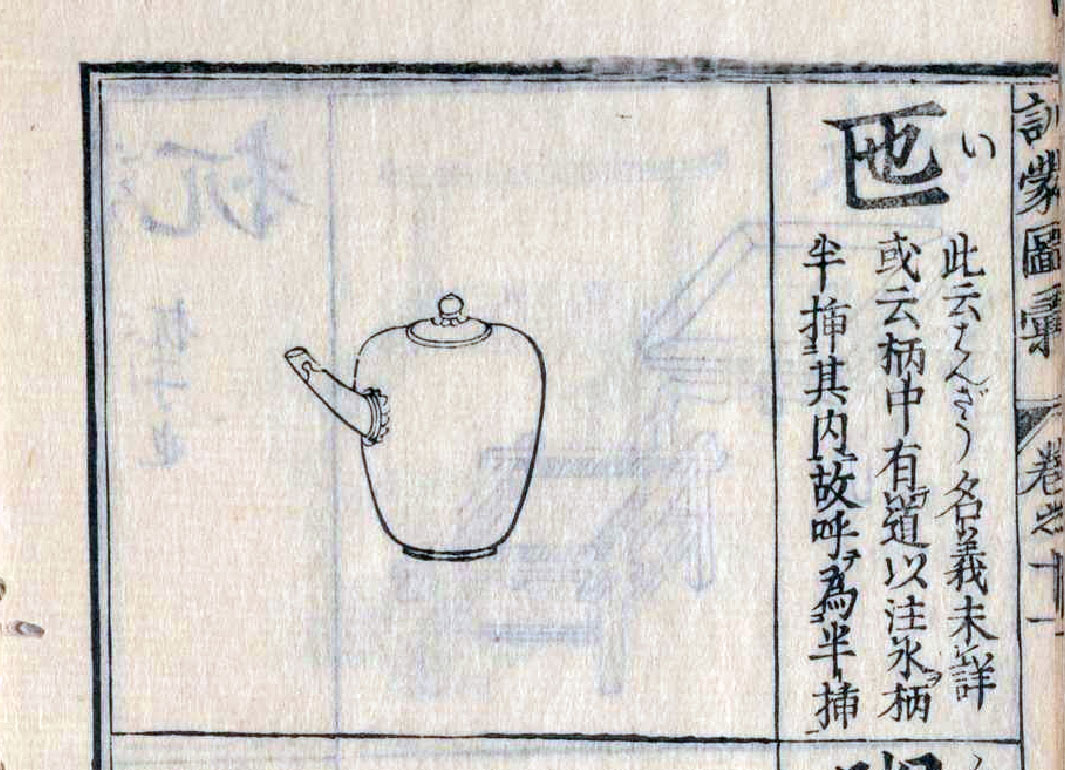 訓蒙圖彙 卷之十一
い
匜
此云はんざう名義未詳
或云柄中有道以注水柄
半挿其内故呼ヲ為半挿